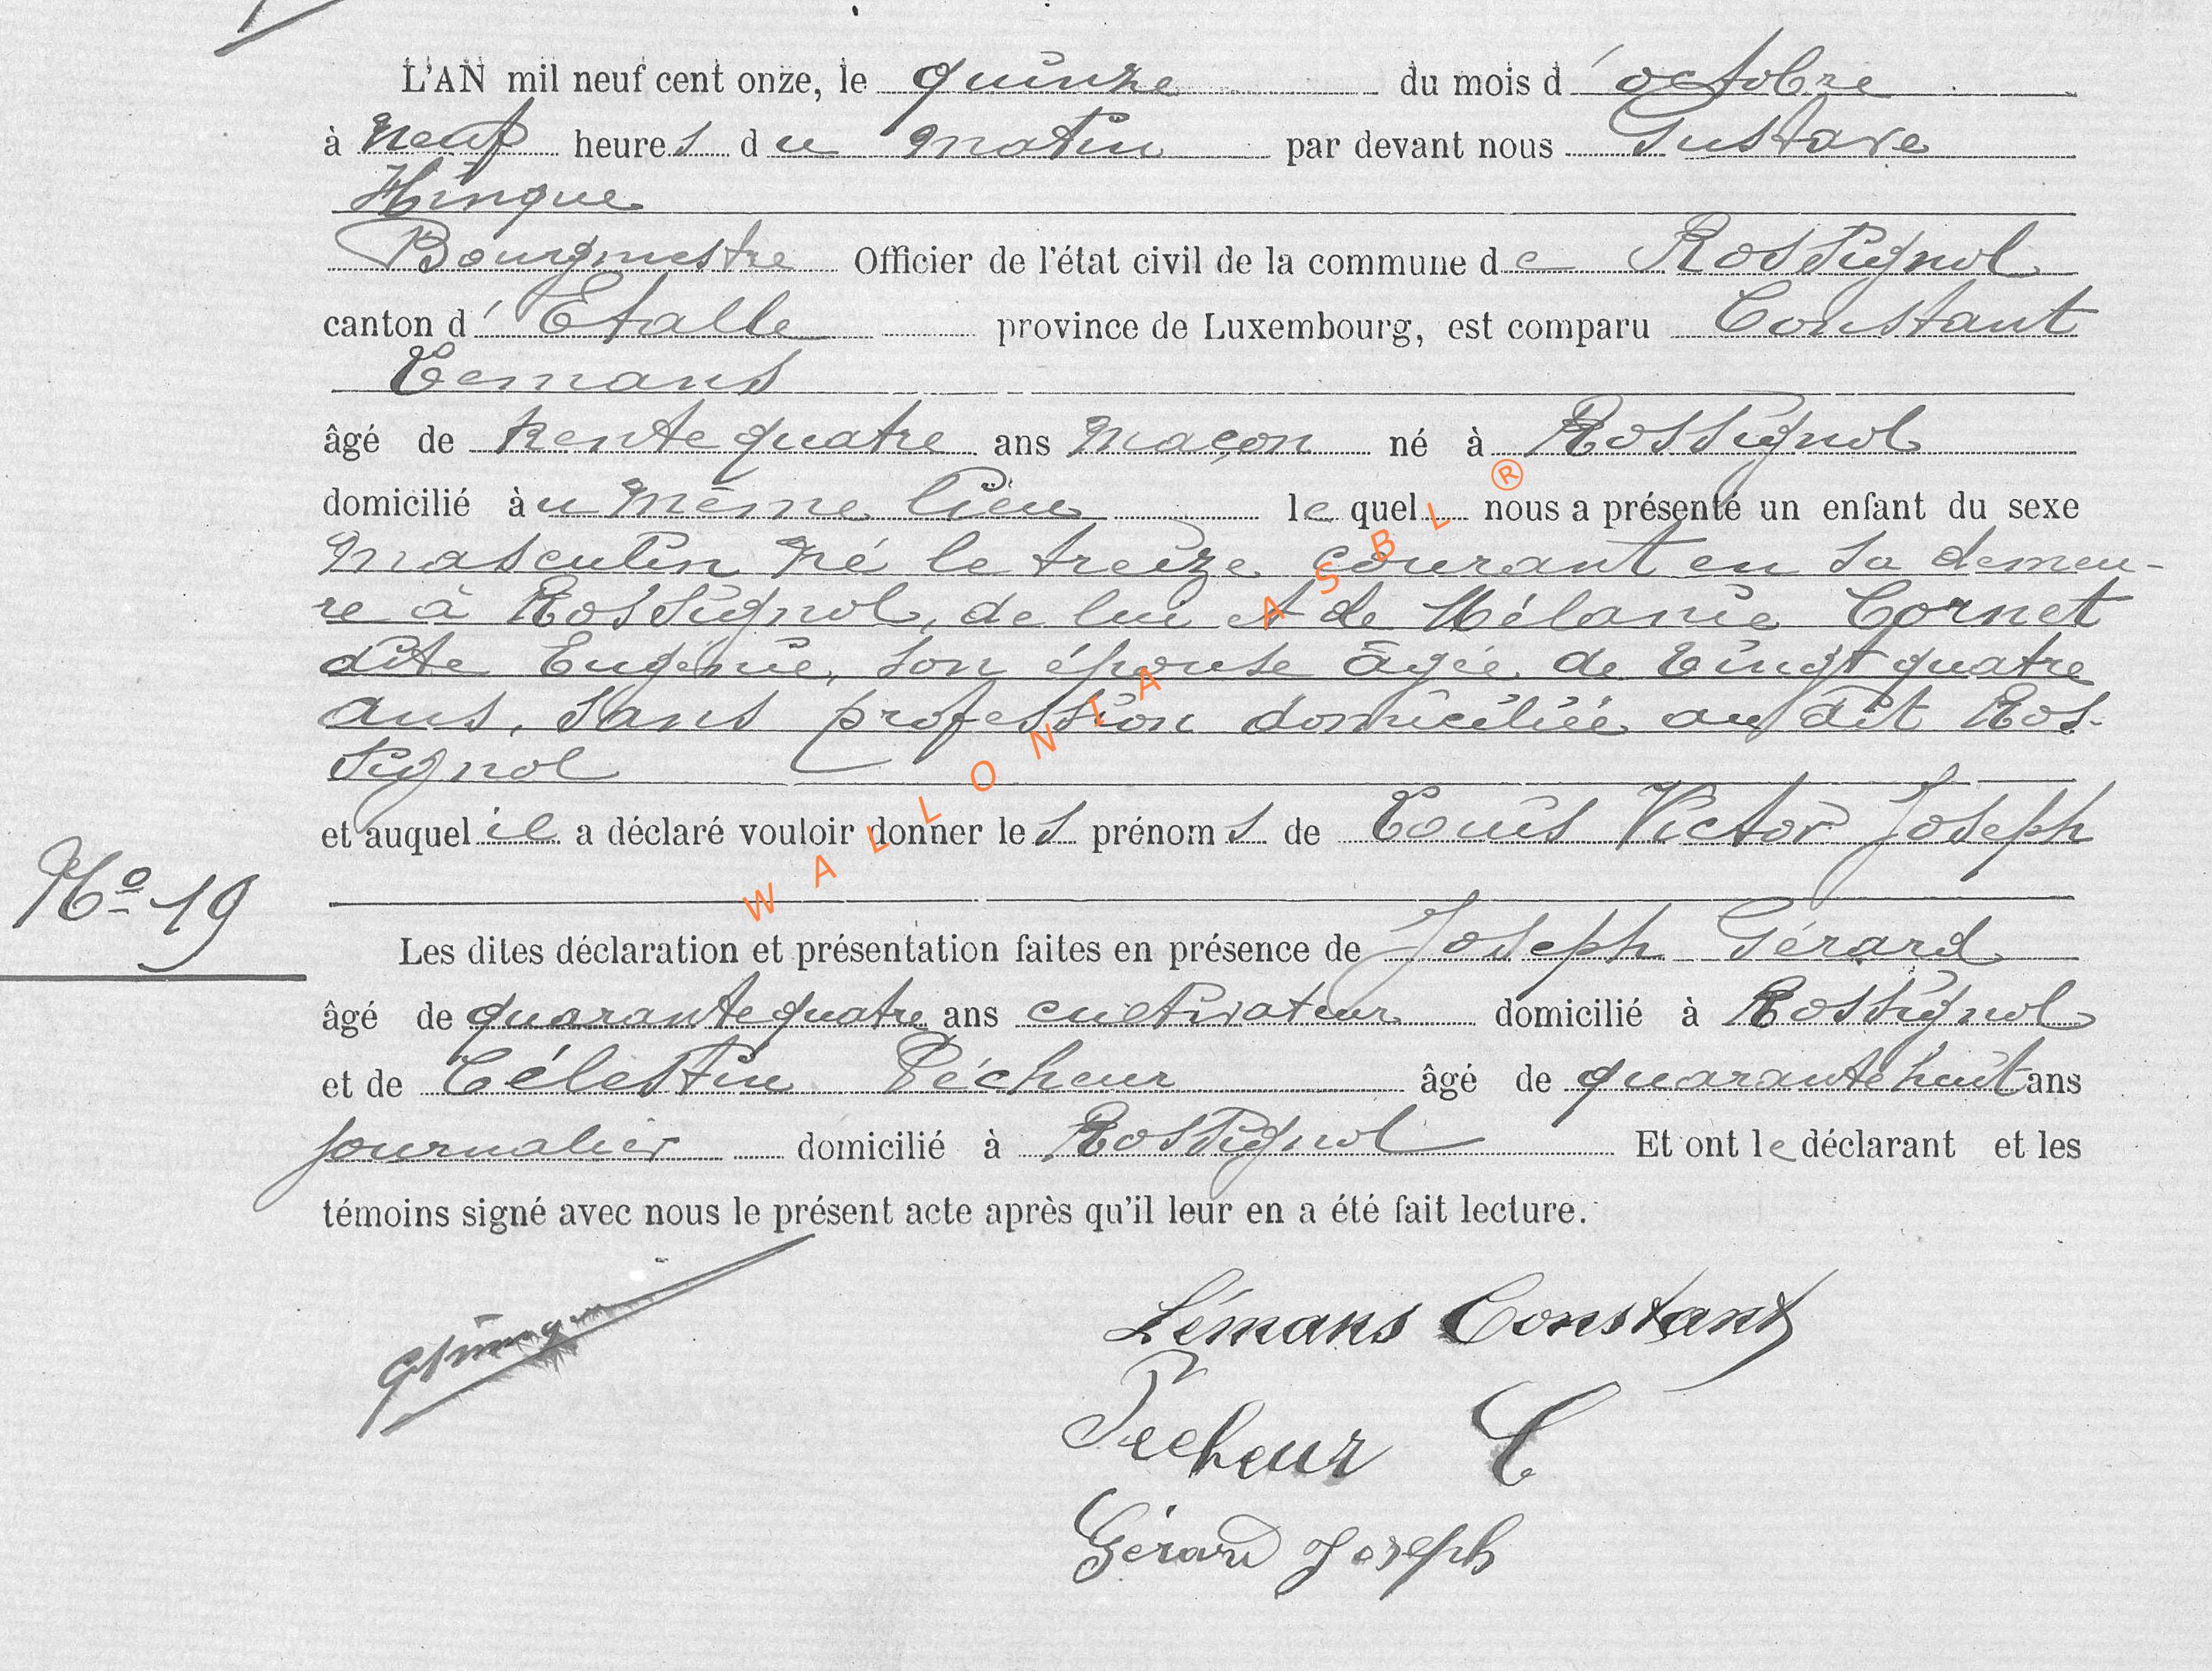 L'AN mil neuf cent onze, le quinze du mois d'octobre
à neuf heures du matin par devant nous Gustave
Hinque
Bourgmestre Officier de l'état civil de la commune de Rossignol
canton d'Etalle province de Luxembourg, est comparu Constant
Lemans
âgé de trente quatre ans maçon né à Rossignol
domicilié au même lieu lequel nous a présenté un enfant du sexe
masculin né le treize courant en sa demeu-
re à Rossignol, de lui et de Mélanie Cornet
dite Eugénie, son épouse âgée de vingt quatre
ans, sans profession domiciliée au dit Ros-
signol
et auquel il a déclaré vouloir donner les prénoms de Louis Victor Joseph
No 19
Les dites déclaration et présentation faites en présence de Joseph Gérard
âgé de quarante quatre ans cultivateur domicilié à Rossignol
et de Célestin Pécheur âgé de quarante huit ans
journalier domicilié à Rossignol Et ont le déclarant et les
témoins signé avec nous le présent acte après qu'il leur en a été fait lecture.
GHinque
Lémans Constant
Pecheur C
Gérard Joseph
WALLONIA ASBL ®